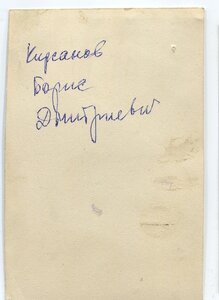 Кирсанов
Борис
Дмитриевич